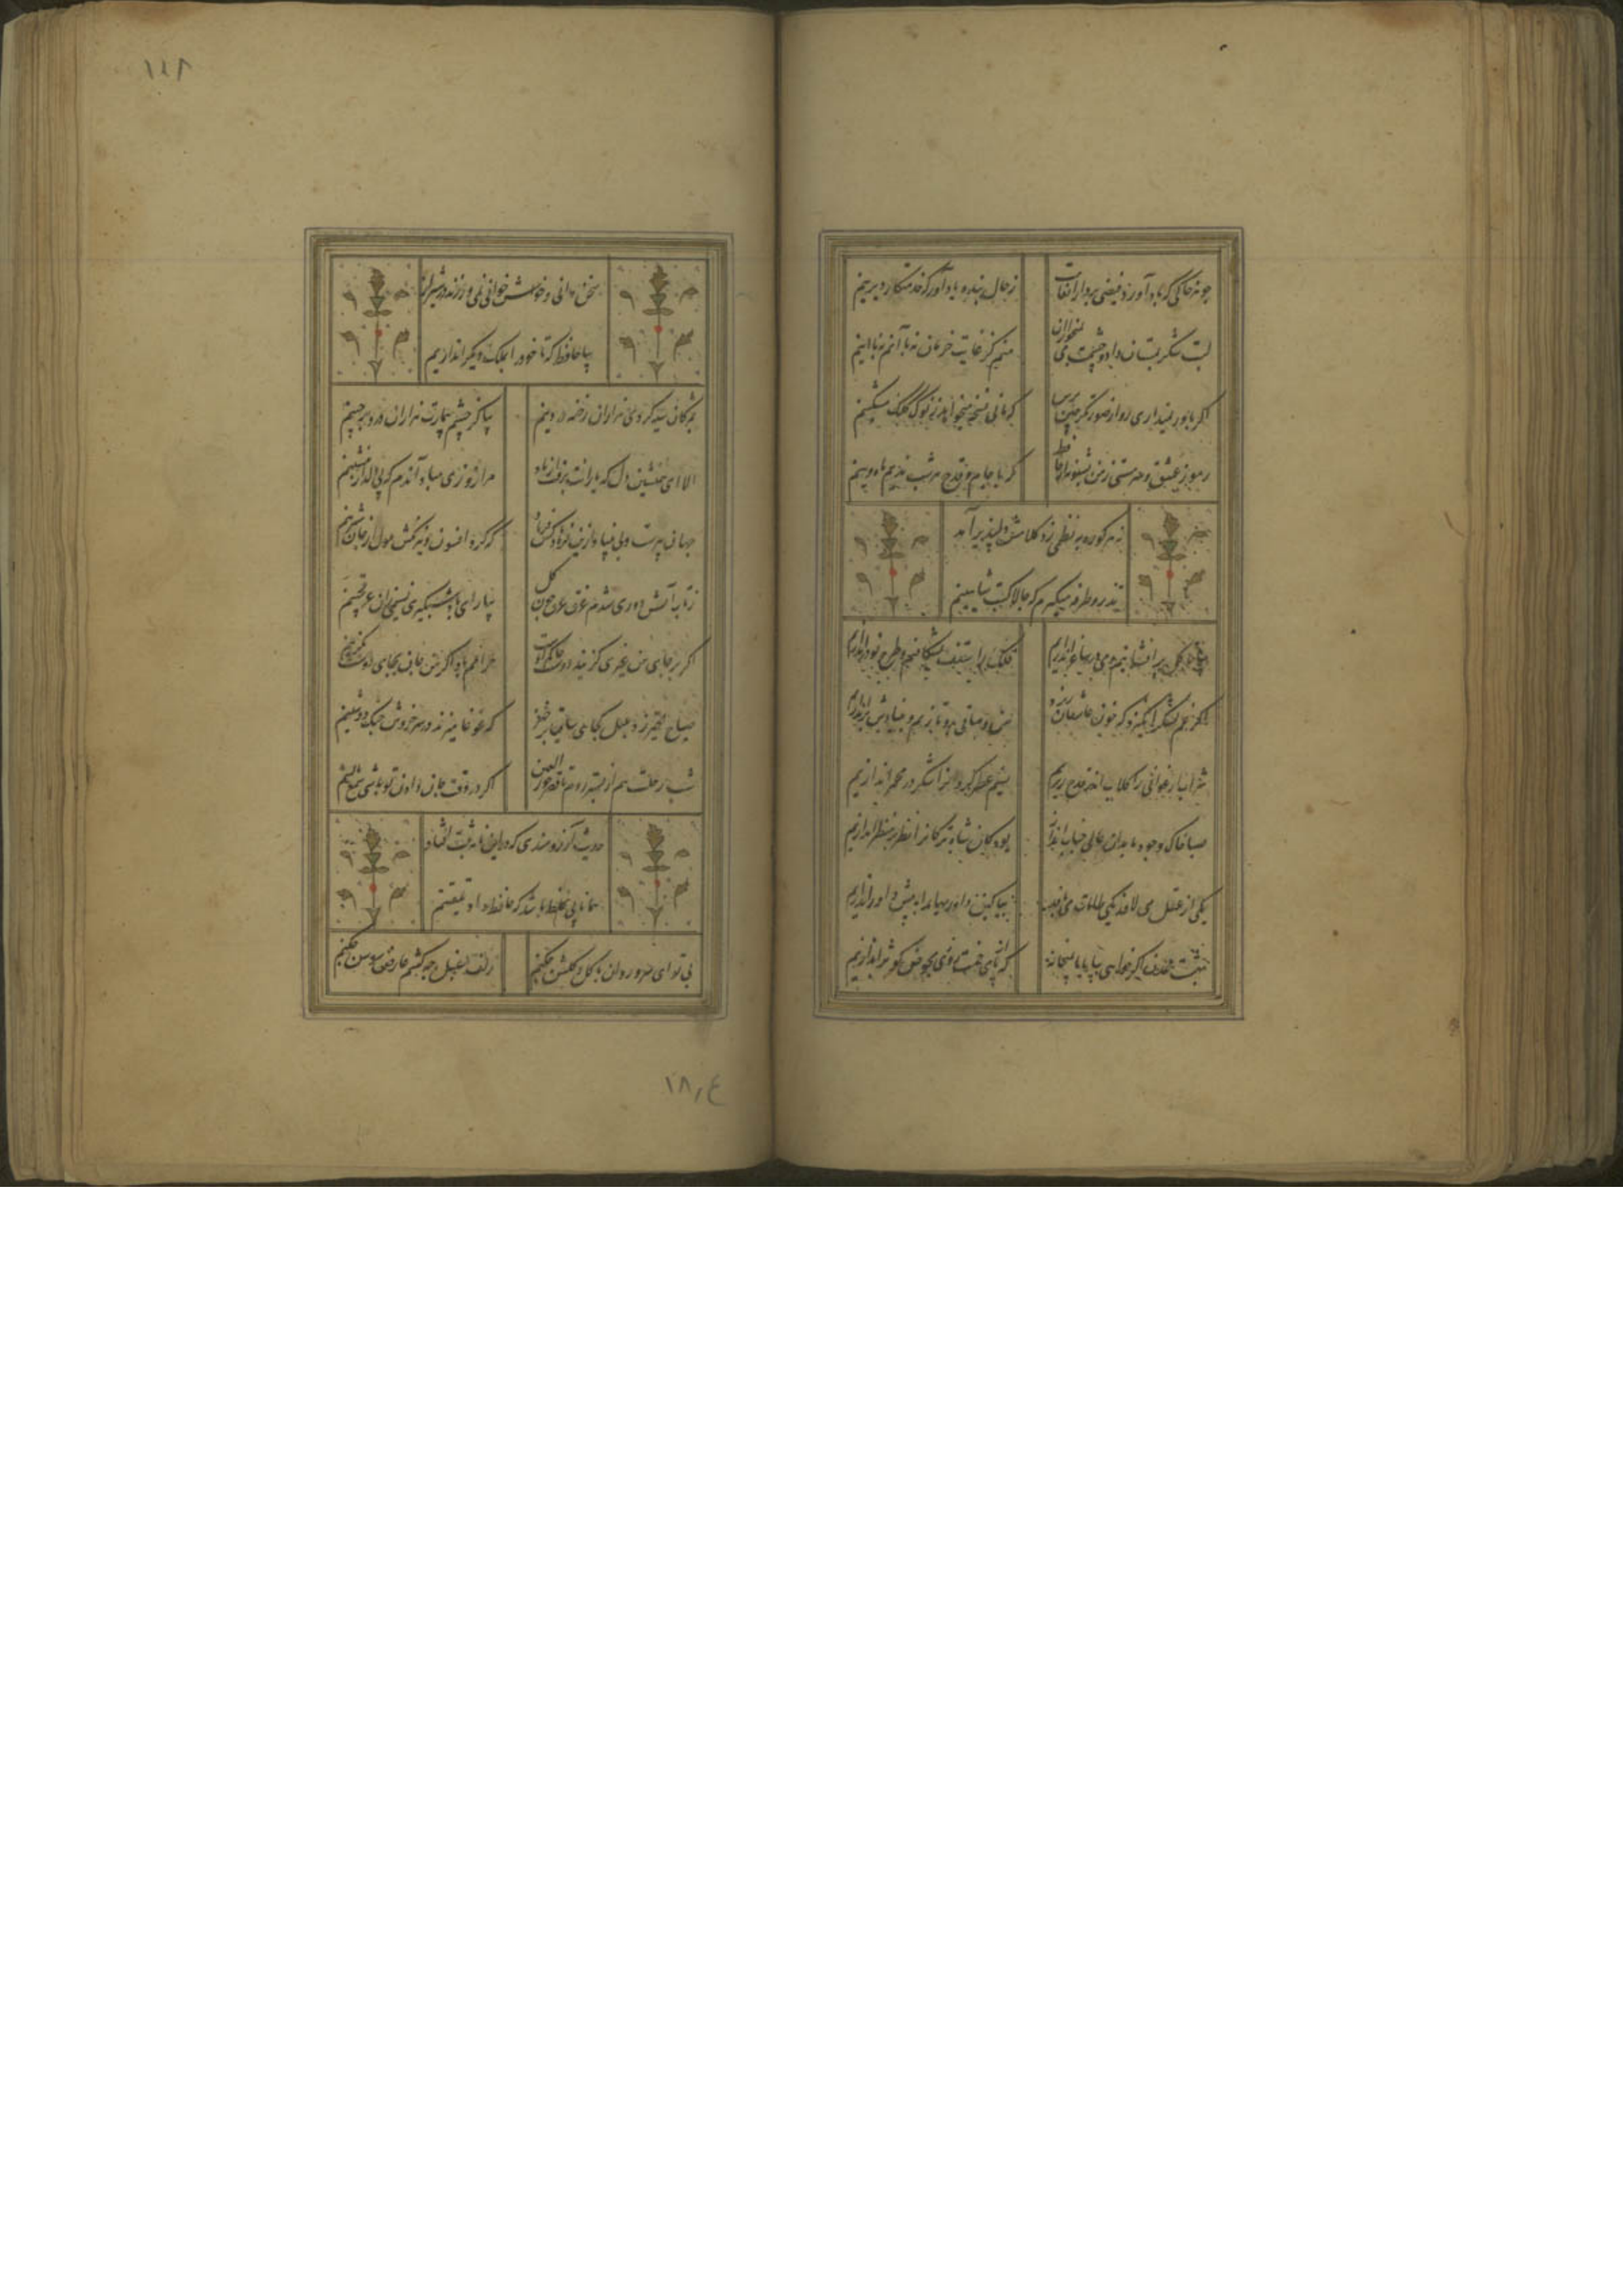 چو هر خاکی که باد آورد فیضی برد از انعامت
ز حال بنده یاد آور که خدمتکار دیرینم
لبت شکر بمستان داد و چشمت می بمخواران
منم کز غایت حرمان نه با آنم نه با اینم
اگر باور نمیداری رو از صورتگر چین پرس
که مانی نسخه میخواهد ز نوک کلک مشکینم
رموز عشق و سرمستی ز من بشنو نه از حافظ
که با جام و قدح هر شب ندیم ماه و پروینم
نه هر کو زد به نظمی زد کلامش دلپذیر آمد
تذرو طرفه میگیرم که چالاکست شاهینم
بیا تا گل برافشانیم و می در ساغر اندازیم
فلک را سقف بشکافیم و طرح نو در اندازیم
اگر غم لشکر انگیزد که خون عاشقان ریزد
من و ساقی برو تازیم و بنیادش براندازیم
شراب ارغوانی را گلاب اندر قدح ریزیم
نسیم عطر گردان را شکر در مجمر اندازیم
صبا خاک وجود ما بدان عالی جناب انداز
بود کان شاه ترکانرا نظر بر منظر اندازیم
یکی از عقل می لافد یکی طامات می بافد
بیا کین داوریها را به پیش داور اندازیم
بهشت عدن اگر خواهی بیا با ما بمیخانه
که از پای خمت روزی بحوض کوثر اندازیم
سخن دانی و خوش خوانی نمی ورزند در شیراز
بیا حافظ که تا خود را بملک دیگر اندازیم
بمژگان سیه کردی هزاران رخنه در دینم
بیا کز چشم بیمارت هزاران درد برچینم
الا ای همنشین دل که یارانت برفت از یاد
مرا روزی مباد آندم که بی یاد تو بنشینم
جهان پیرست و بی بنیاد ازین فرهادکش فریاد
که کرد افسون و نیرنگش ملول از جان شیرینم
ز تاب آتش دوری شدم غرق عرق چون گل
بیار ای باد شبگیری نسیمی زان عرقچینم
اگر بر جای من غیری گزیند دوست حاکم اوست
حرامم باد اگر من جان بجای دوست بگزینم
صباح الخیر زد بلبل کجایی ساقیا برخیز
که غوغا میزند در سر خروش چنگ دوشینم
شب رحلت هم از بستر روم تا قصر حور العین
اگر در وقت جان دادن تو باشی شمع بالینم
حدیث آرزومندی که در این نامه ثبت افتاد
همانا بی غلط باشد که حافظ داد تلقینم
بی تو ای سرو روان با گل و گلشن چکنم
زلف سنبل چه کشم عارض سوسن چکنم